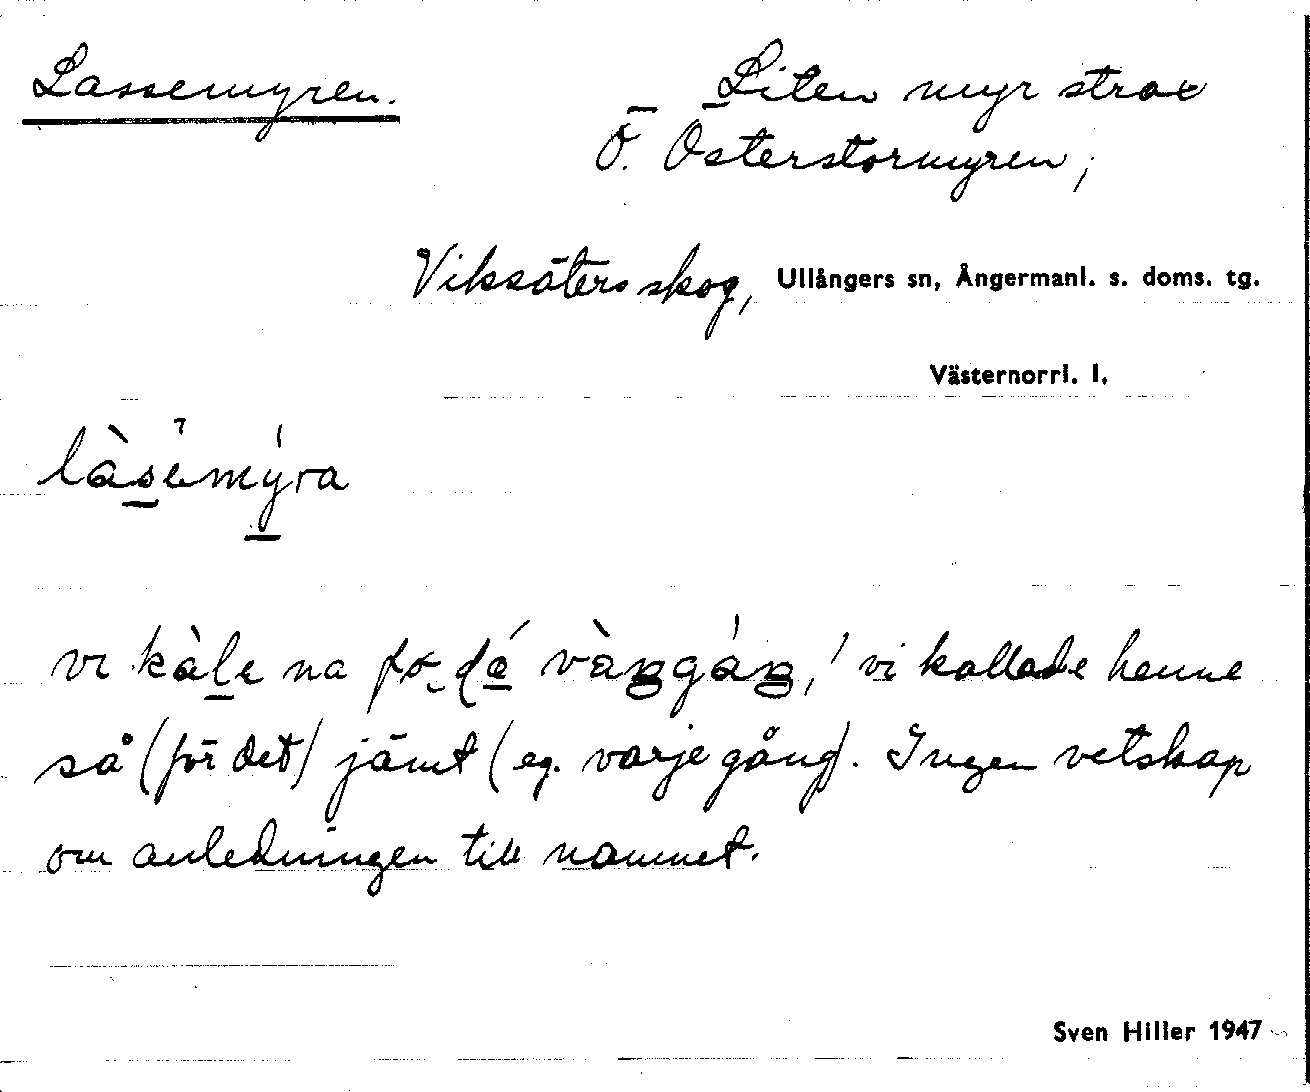 Lassemyren.
Liten myr strax
Ö. Österstormyren;
Viksäters skog, Ullångers sn, Ångermanl. s. doms. tg.
Västernorrl. l.
làsemýra
vi kàle na fo de vàŋgáŋ, / vi kallade henne
så (för det) jämt (eg. varje gång). Ingen vetskap
om anledningen till namnet.
Sven Hiller 1947